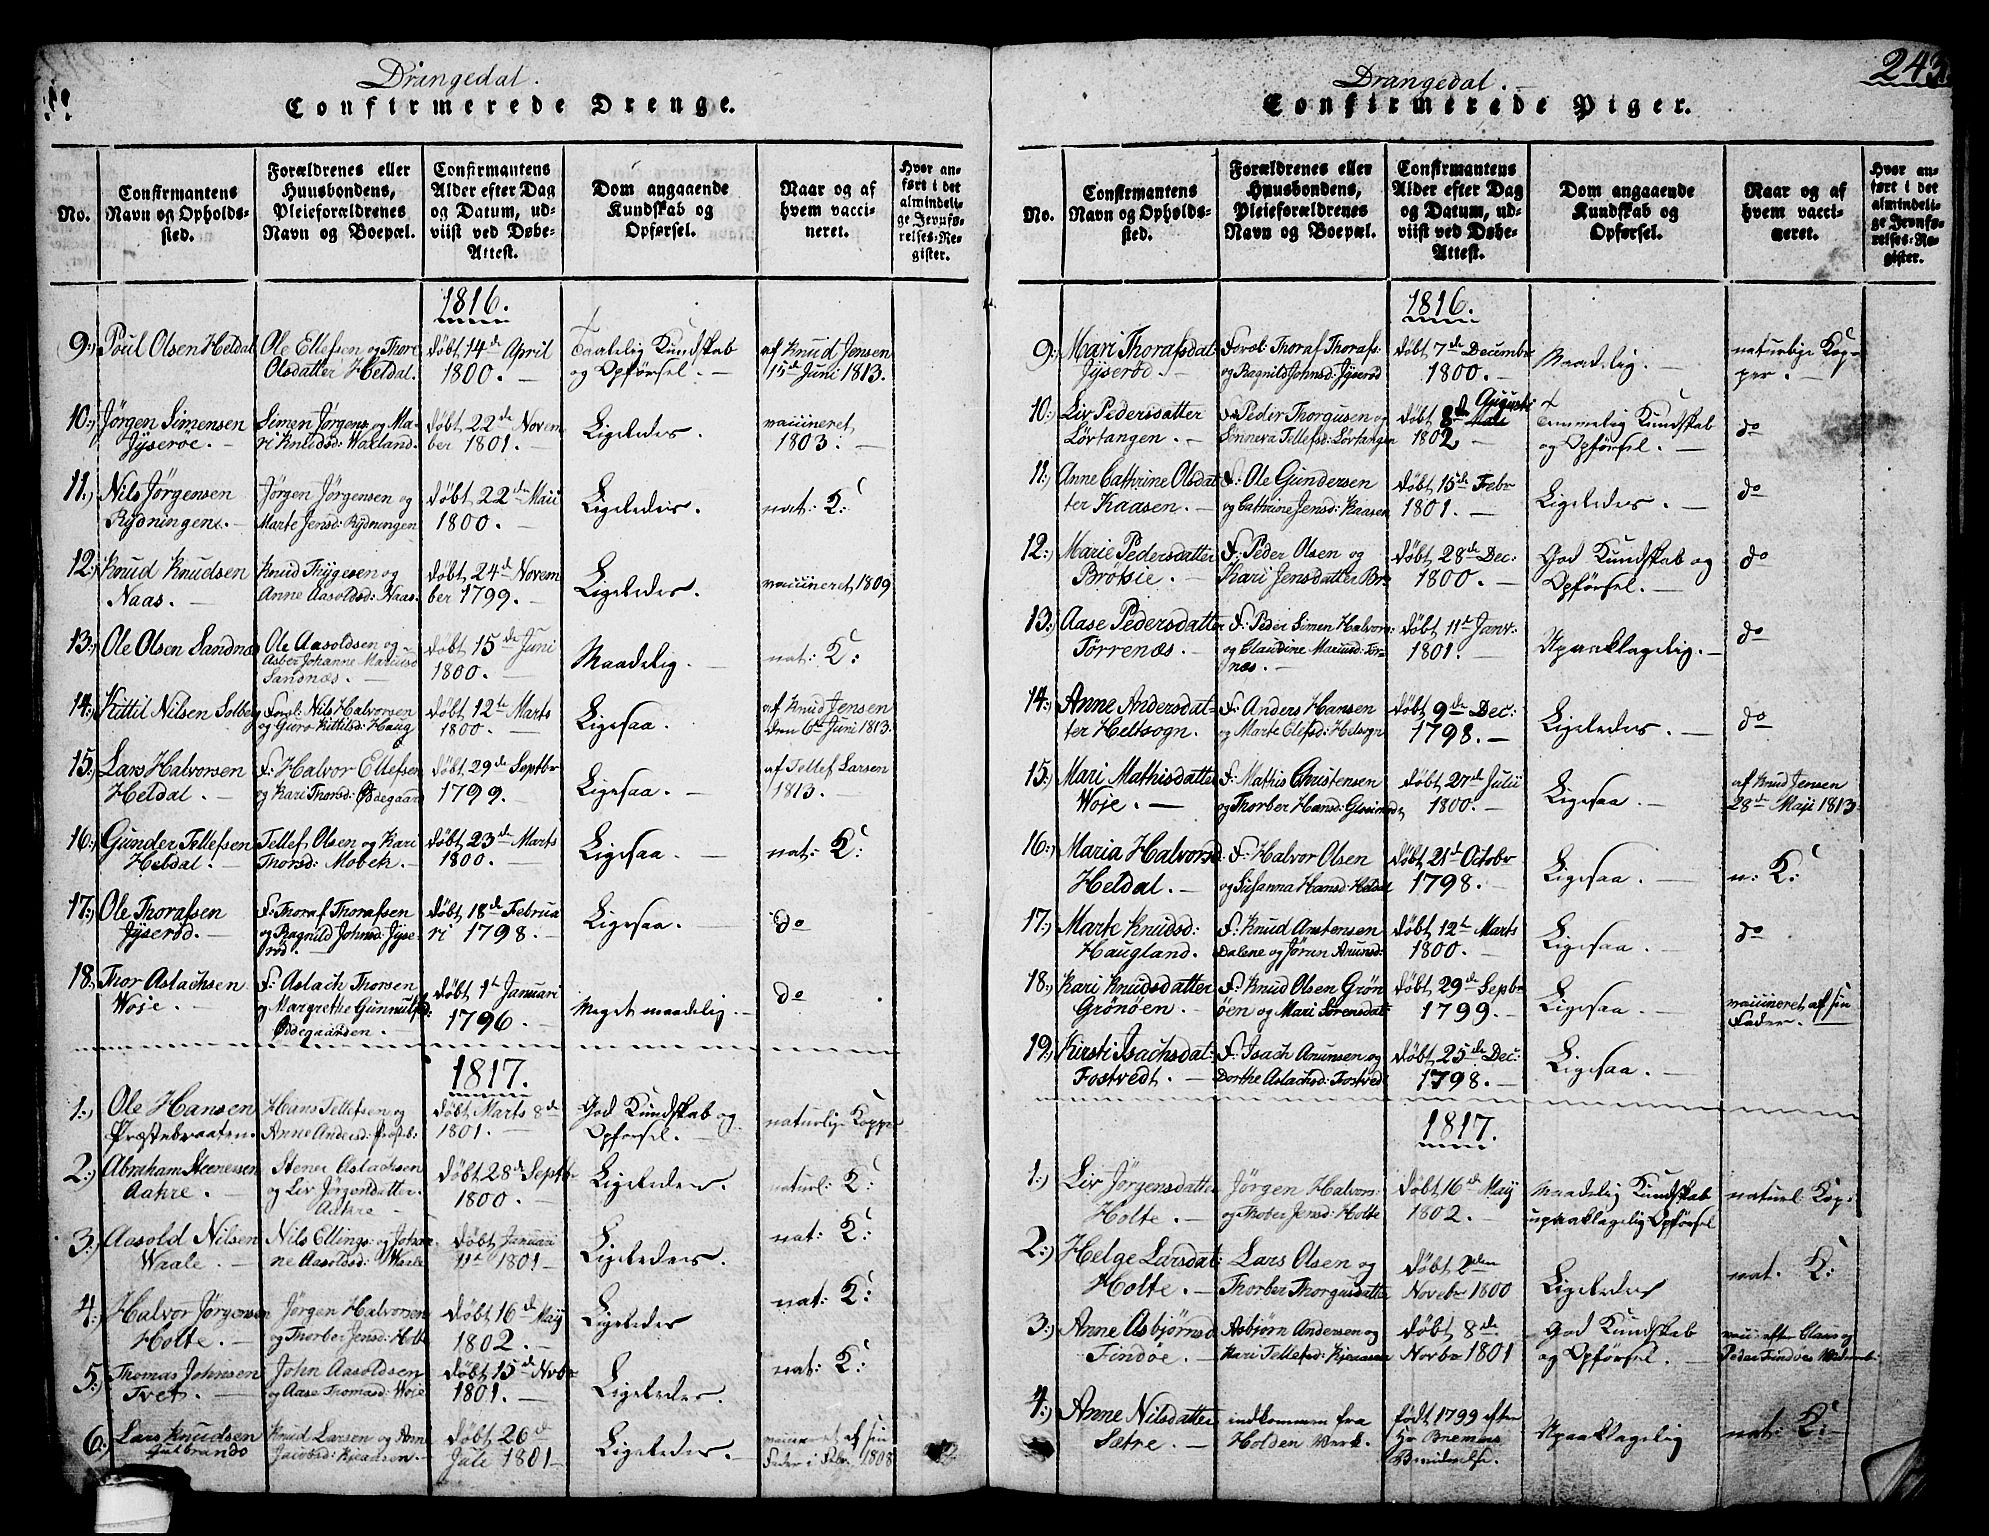 Drangedal.
Confirmerede Drenge.
No.
Confirmantens Navn og Opholdssted.
Forældrenes eller Huusbondens, Pleieforældrenes Navn og Boepæl.
Confirmantens Alder efter Dag og Datum, udviist ved Døbe-Attest.
Dom angaaende Kundskab og Opførsel.
Naar og af hvem vaccineret.
Hvor anført i det almindelige Jevnførelses-Register.
1816.
9:) Poul Olsen Heldal Ole Ellefsen og Thore døbt 14de April Taalelig Kundskab af Knud Jensen
Olsdatter Heldal. 1800. og Opførsel. 15de Juni 1813.
10:) Jörgen Simensen Simen Jörgens og Ma- døbt 22de Novem- Ligeledes. vaccineret
Jyseroe. ri Knudsd: Waaland. ber 1801. 1803.
11:) Nils Jörgensen Jörgen Jörgensen og døbt 22de Maii Ligeledes. nat: K:
Rydningen. Marte Jensd: Rydningen 1800.
12:) Knud Knudsen Knud Thygesen og døbt 24de Novem- Ligeledes. vaccineret 1809
Naas. Anne Aasoldsd: Naas. ber 1799.
13:) Ole Olsen Sandnæs Ole Aasoldsen og døbt 15de Juni Maadelig. nat: K:
Johanne
Sandnæs. 1800.
14:) Kittil Nilsen Solberg Foræl: Nils Halvorsen døbt 12te Marts Ligesaa. af Knud Jensen
og Guro Kittilsd: Haug 1800. den 6te Juni 1813.
15:) Lars Halvorsen F: Halvor Ellefsen døbt 29de Septbr Ligesaa. af Tellef Larsen
Heldal. og Kari Thorsd: Ødegaard 1799. 1813.
16:) Gunder Tellefsen Tellef Olsen og Kari døbt 23de Marts Ligesaa. nat: K:
Heldal. Thorsd: Mobek. 1800.
17:) Ole Thorafsen F: Thoraf Thorafsen døbt 18de Februa- Ligesaa. do
Jyserød. og Ragnild Johnsd: Jyse- ri 1798.
rød.
18. Thor Aslachsen F. Aslach Thorsen døbt 1te Januari Meget maadelig. do
Woje. og Margrethe Gunnulfsd: 1796.
Ødegaarden.
1817.
1:) Ole Hansen Hans Tellefsen og døbt Marts 8de God Kundskab og naturlige Kopper
Præstebraaten. Anne Andersd: Præsteb: 1801. Opførsel.
2:) Abraham Steenersen Stener Aslachsen døbt 28de Septbr Ligeledes. naturl: K:
Aakre. og Liv Jörgensdatter. 1800.
Aakre
3:) Aasold Nilsen Nils Ellings: og Johan- døbt Januari Ligeledes. nat: K:
Waale. ne Aasoldsd: Waale 11te 1801
4:) Halvor Jörgensen Jörgen Halvorsen døbt 16de Maij Ligeledes nat: K:
Holte. og Thorber Jensd: Holte 1802.
5:) Thomas Johnsen John Aasoldsen døbt 15de Novbr Ligeledes. nat: K:
Tvet. og Aase Thomasd: Woje 1801.
6:) Lars Knudsen Knud Larsen og Anne døbt 26de Ligeledes. vaccineret af sin
Gulbrando Jacobsd: Kjeaasen. Juli 1801 Fader i Febr. 1808
243
Drangedal.
Confirmerede Piger.
No.
Confirmantens Navn og Opholdssted.
Forældrenes eller Huusbondens, Pleieforældrenes Navn og Boepæl.
Confirmantens Alder efter Dag og Datum, udviist ved Døbe-Attest.
Dom angaaende Kundskab og Opførsel.
Naar og af hvem vaccineret.
Hvor anført i det almindelige Jevnførelses-Register.
1816.
9:) Mari Thorafsdat. Foræl: Thoraf Thorafs: døbt 7de Decembr Maadelig. naturlige Kop-
Jyserød. og Ragnild Johnsd: Jyserød 1800. per.
10:) Liv Pedersdatter F: Peder Thorgusen og døbt 8de Augusti Temmelig Kundskab do
Lörtangen. Sönnera Tellefsd: Lörtangen 1802 og Opførsel.
11:) Anne Cathrine Olsdat- F: Ole Gundersen døbt 15de Febr Ligeledes. do
ter Kaasen. og Cathrine Jensd: Kaasen 1801.
12:) Marie Pedersdatter F: Peder Olsen og døbt 28de Dec: God Kundskab og do
Brötsie. Kari Jensdatter Br: 1800. Opførsel.
13:) Aase Pedersdatter F: Peder Simen Halvors: døbt 11te Janv: Upaaklagelig. do
Törrenæs. og Claudine Mariusd: Tör- 1801.
næs.
14:) Anne Andersdat- F: Anders Hansen døbt 9de Dec: Ligeledes. do
ter Heltsogn. og Marte Elefsd: Helsogn 1798.
15:) Mari Mathisdatter F: Mathis Christensen døbt 27de Julii Ligesaa. af Knud Jensen
Woje. og Thorber Hansd: 1800. 28de Maji 1813
16:) Maria Halvorsd F: Halvor Olsen døbt 21de Octobr Ligesaa. n: K:
Heldal. og Susanna Hansd: Heldal 1798.
17:) Marte Knudsd: F: Knud Anstensen døbt 12te Marts Ligesaa. do
Haugland. Dalene og Jören Anunsd: 1800.
18.) Kari Knudsdatter F: Knud Olsen Grön- døbt 29de Septbr Ligesaa. vaccineret af sin
Grönöen. öen og Mari Sörensdat: 1799. Fader.
19:) Kirsti Isachsdat: F: Isach Anunsen og døbt 25de Dec: Ligesaa.
Fostvedt. Dorthe Aslachsd: Fostved 1798.
1817.
1:) Liv Jörgensdatter Jörgen Halvors: døbt 16de Maij Maadelig Kundskab naturl: Kop:
Holte. og Thober Jensd: Holte 1802. upaaklagelig Opførsel
2:) Helge Larsdat: Lars Olsen og døbt 2den Ligeledes nat. K:
Holte. Thorber Thorgusdatter Novebr 1800
3:) Anne Asbjörnsd Asbjörn Andersen og døbt 8de God Kundskab vacc: efter Claus og
Findöe. Kari Tellefsd: Kjeaasen Novbr 1801 og Opførsel. Peder Findöes
4:) Anne Nilsdatter indkommen fra født 1799 efter Upaaklagelig nat: K:
Sætre. Holden Werk. Hr Bremers
Beviidnelse.